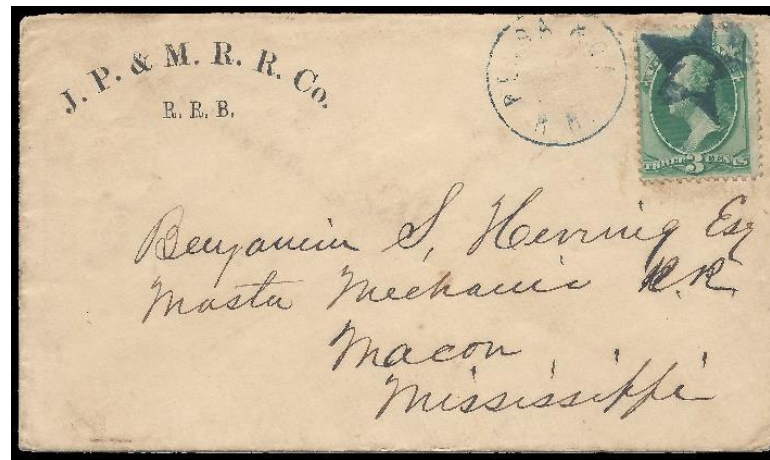 J. P. & M. R. R. Co.
R. R. B.
R. R.
THREE 3 CENTS
Benjamin S. Herring Esq
Master Mechanic R.R.
Macon
Mississippi